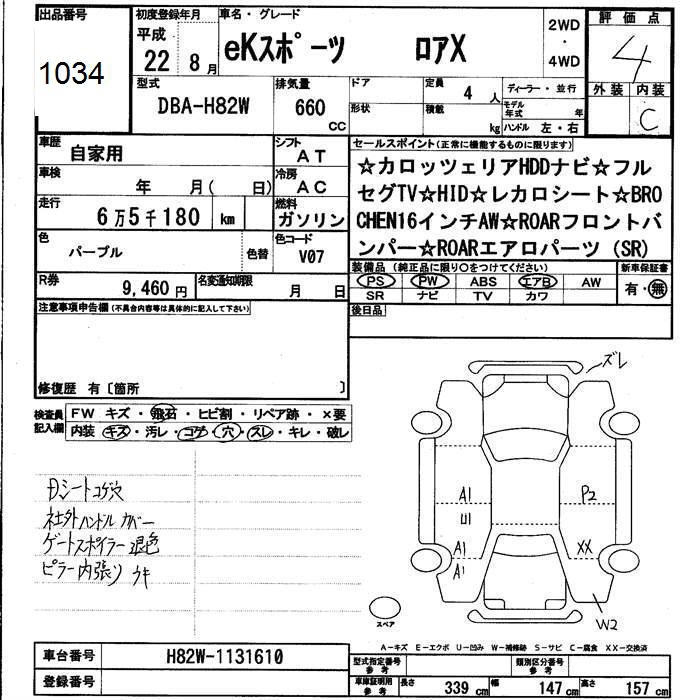 出品番号
1034
初度登録年月
平成
22 8月
車名・グレード
eKスポーツ ロアX
2WD
・
4WD
評価点
4
外装 内装
C
型式
DBA-H82W
排気量
660
CC
ドア
形状
定員
4 人
積載
kg
ディーラー・並行
モデル年式 年
ハンドル 左・右
車歴
自家用
シフト
AT
車検
年 月( 日)
冷房
AC
走行
6万5千180 km
燃料
ガソリン
色
パープル
色替
色コード
V07
R券
9,460円
名変通知期限
月 日
セールスポイント(正常に機能するものに限ります)
☆カロッツェリアHDDナビ☆フル
セグTV☆HID☆レカロシート☆BRO
CHEN16インチAW☆ROARフロントバ
ンパー☆ROARエアロパーツ(SR)
装備品(純正品に限り○をつけてください)
PS PW ABS エアB AW
SR ナビ TV カワ
新車保証書
有・無
後日品
注意事項申告欄(不具合内容等は具体的に記入して下さい)
修復歴 有〔箇所 〕
検査員記入欄
FW キズ・飛石・ヒビ割・リペア跡・×要
内装 キズ・汚レ・コゲ・穴・スレ・キレ・破レ
Dシートコゲ穴
社外ハンドル カバー
ゲートスポイラー退色
ピラー内張り ウキ
ズレ
A1
U1
A1
A1
P2
XX
W2
スペア
A-キズ E-エクボ U-凹み W-補修跡 S-サビ C-腐食 XX-交換済
車台番号
H82W-1131610
登録番号
型式指定番号
参考
類別区分番号
参考
車庫証明用
参考
長さ 339cm 幅 147cm 高さ 157cm